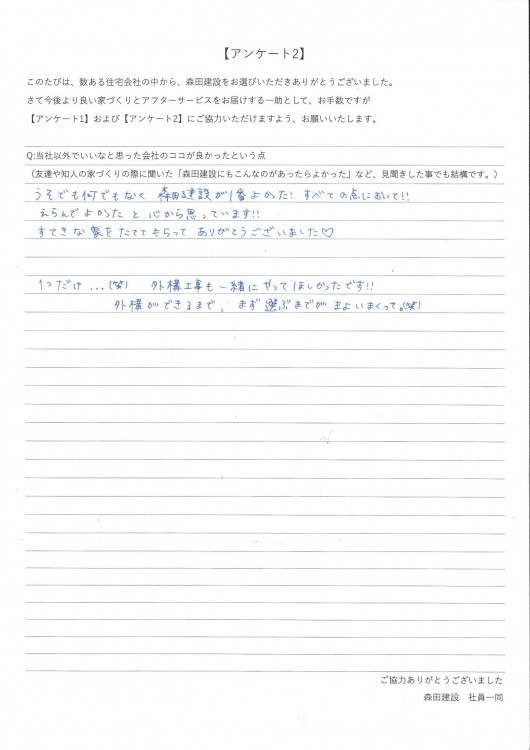 【アンケート2】
このたびは、数ある住宅会社の中から、森田建設をお選びいただきありがとうございました。
さて今後より良い家づくりとアフターサービスをお届けする一助として、お手数ですが
【アンケート1】および【アンケート2】にご協力いただけますよう、お願いいたします。
Q:当社以外でいいなと思った会社のココが良かったという点
（友達や知人の家づくりの際に聞いた「森田建設にもこんなのがあったらよかった」など、見聞きした事でも結構です。）
うそでも何でもなく 森田建設が1番よかった! すべての点において!!
えらんでよかったと心から思っています!!
すてきな家をたててもらって ありがとうございました♡
1つだけ...(笑) 外構工事も一緒にやってほしかったです!!
外構ができるまで、まず選ぶまでがまよいまくって。(笑)
ご協力ありがとうございました
森田建設 社員一同